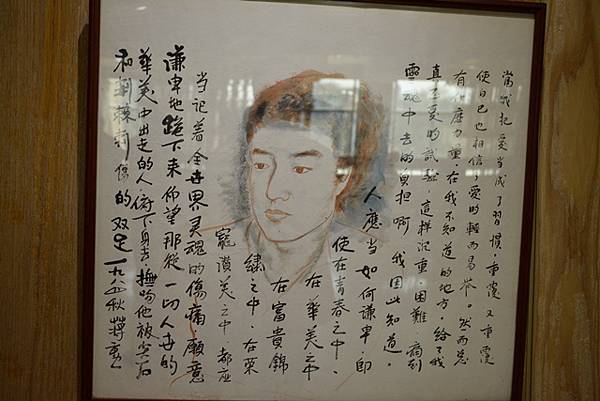 當我把愛當成了習慣，重覆又重覆
使自己也相信愛的輕而易舉。然而總
有什麼力量，在我不知道的地方，給了我
真正愛的試驗 這樣沉重 困難 痛到
靈魂中去的負担啊 我因此知道。
人應当如何謙卑。即
使在青春之中、
在華美之中
在富貴錦
繡之中、在榮
寵讚美之中 都應
当记着全世界灵魂的傷痛 願意
谦卑地跪下来 仰望那從一切人世的
華美中出走的人 俯下身去，撫吻他被尖石
和荊棘刺傷的双足 一九八五秋 蔣勳